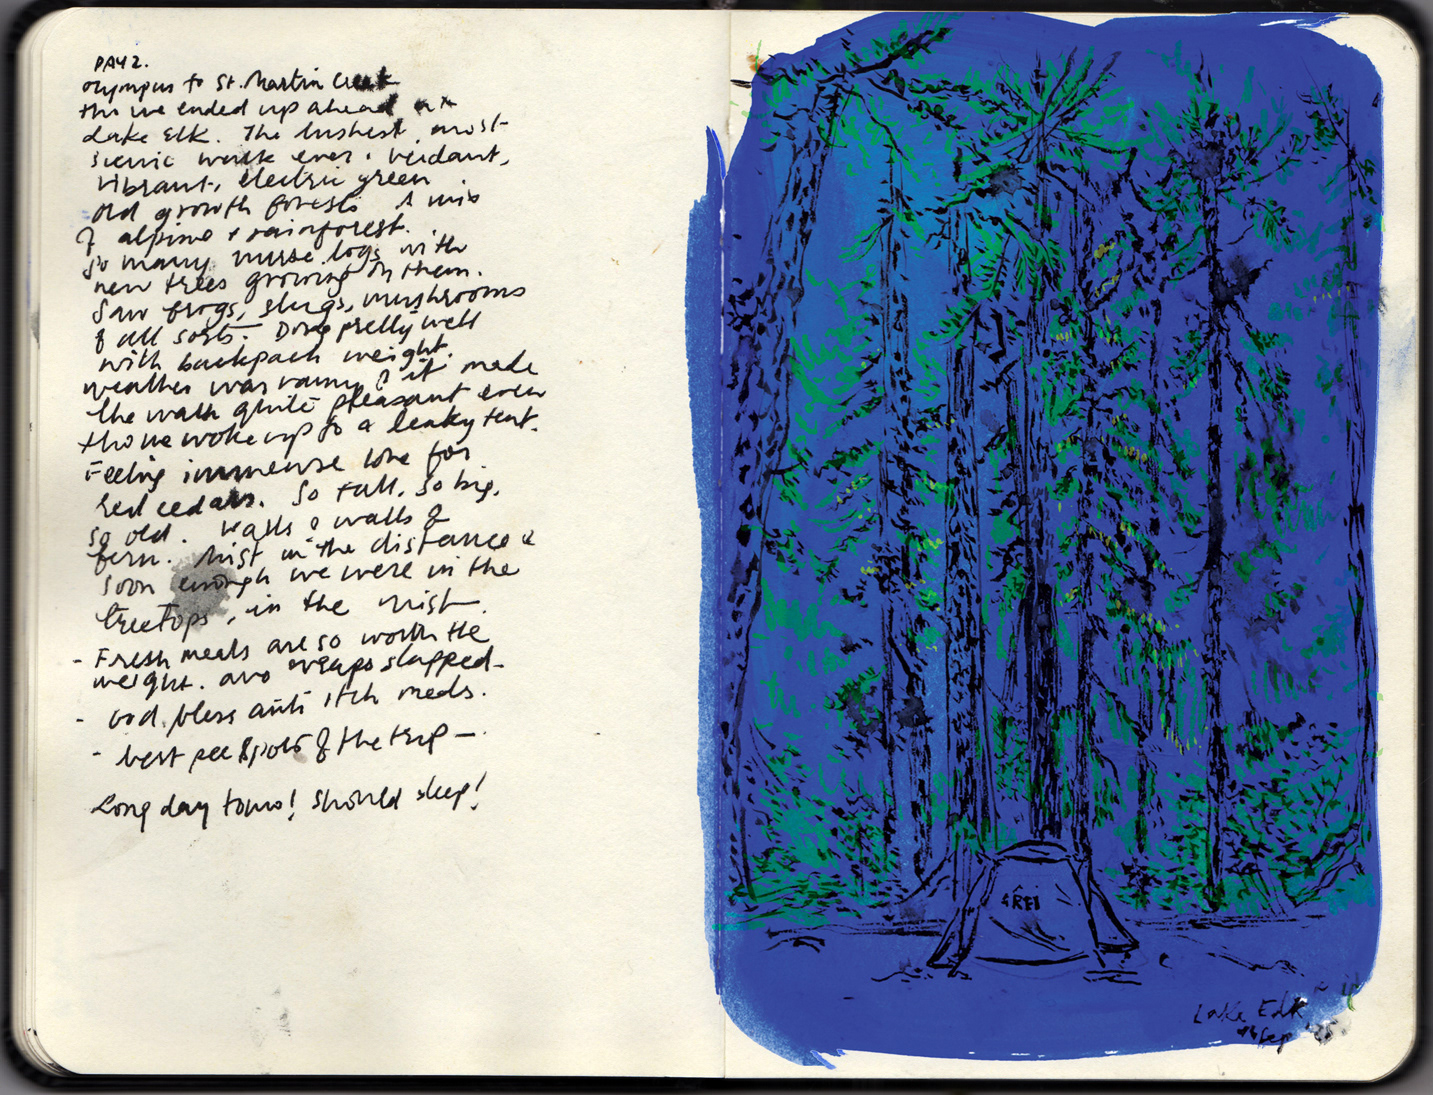 DAY 2.
Olympus to St. Martin Creek
tho we ended up ahead at
Lake Elk. The lushest, most
scenic walk ever. Verdant,
vibrant, electric green
old growth forests. A mix
of alpine & rainforest.
So many nurse logs with
new trees growing on them.
Saw frogs, slugs, mushrooms
of all sorts. Doing pretty well
with backpack weight.
weather was rainy & it made
the walk quite pleasant even
tho we woke up to a leaky tent.
Feeling immense love for
red cedars. So tall, so big,
so old. Walls & walls of
fern. Mist in the distance &
soon enough we were in the
treetops, in the mist.
- Fresh meals are so worth the
weight. avo wraps slapped.
- God bless anti itch meds.
- best pee spots of the trip -
Long day tomo! Should sleep!
REI
Lake Elk
Sep '25